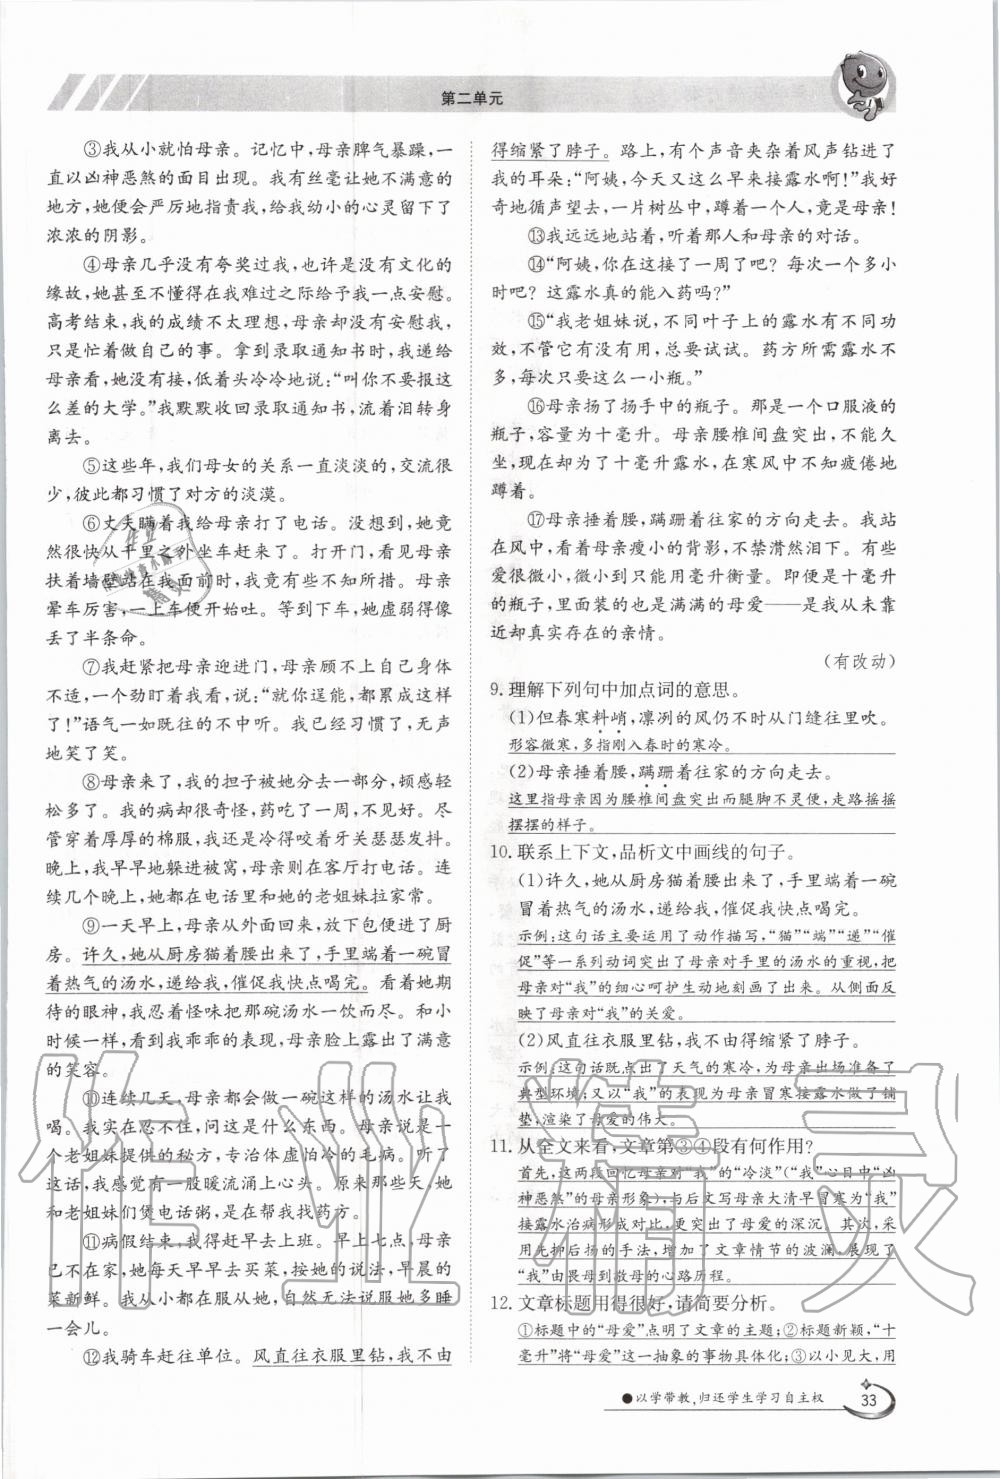 第二单元
③我从小就怕母亲。记忆中,母亲脾气暴躁,一
直以凶神恶煞的面目出现。我有丝毫让她不满意的
地方,她便会严厉地指责我,给我幼小的心灵留下了
浓浓的阴影。
④母亲几乎没有夸奖过我,也许是没有文化的
缘故,她甚至不懂得在我难过之际给予我一点安慰。
高考结束,我的成绩不太理想,母亲却没有安慰我,
只是忙着做自己的事。拿到录取通知书时,我递给
母亲看,她没有接,低着头冷冷地说:“叫你不要报这
么差的大学。”我默默收回录取通知书,流着泪转身
离去。
⑤这些年,我们母女的关系一直淡淡的,交流很
少,彼此都习惯了对方的淡漠。
⑥丈夫瞒着我给母亲打了电话。没想到,她竟
然很快从千里之外坐车赶来了。打开门,看见母亲
扶着墙壁站在我面前时,我竟有些不知所措。母亲
晕车厉害,一上车便开始吐。等到下车,她虚弱得像
丢了半条命。
⑦我赶紧把母亲迎进门,母亲顾不上自己身体
不适,一个劲盯着我看,说:“就你逞能,都累成这样
了!”语气一如既往的不中听。我已经习惯了,无声
地笑了笑。
⑧母亲来了,我的担子被她分去一部分,顿感轻
松多了。我的病却很奇怪,药吃了一周,不见好。尽
管穿着厚厚的棉服,我还是冷得咬着牙关瑟瑟发抖。
晚上,我早早地躲进被窝,母亲在客厅打电话。连
续几个晚上,她都在电话里和她的老姐妹拉家常。
⑨一天早上,母亲从外面回来,放下包便进了厨
房。许久,她从厨房猫着腰出来了,手里端着一碗冒
着热气的汤水,递给我,催促我快点喝完。看着她期
待的眼神,我忍着怪味把那碗汤水一饮而尽。和小
时候一样,看到我乖乖的表现,母亲脸上露出了满意
的笑容。
⑩连续几天,母亲都会做一碗这样的汤水让我
喝。我实在忍不住,问这是什么东西。母亲说是一
个老姐妹提供的秘方,专治体虚怕冷的毛病。听了
这话,我感觉有一股暖流涌上心头。原来那些天,她
和老姐妹们煲电话粥,是在帮我找药方。
⑪病假结束,我得赶早去上班。早上七点,母亲
已不在家。她每天早早去买菜,按她的说法,早晨的
菜新鲜。我从小都在服从她,自然无法说服她多睡
一会儿。
⑫我骑车赶往单位。风直往衣服里钻,我不由
得缩紧了脖子。路上,有个声音夹杂着风声钻进了
我的耳朵:“阿姨,今天又这么早来接露水啊!”我好
奇地循声望去,一片树丛中,蹲着一个人,竟是母亲!
⑬我远远地站着,听着那人和母亲的对话。
⑭“阿姨,你在这接了一周了吧?每次一个多小
时吧?这露水真的能入药吗?”
⑮“我老姐妹说,不同叶子上的露水有不同功
效,不管它有没有用,总要试试。药方所需露水不
多,每次只要这么一小瓶。”
⑯母亲扬了扬手中的瓶子。那是一个口服液的
瓶子,容量为十毫升。母亲腰椎间盘突出,不能久
坐、久蹲,现在却为了十毫升露水,在寒风中不知疲倦地
蹲着。
⑰母亲捶着腰,蹒跚着往家的方向走去。我站
在风中,看着母亲瘦小的背影,不禁潸然泪下。有些
爱很微小,微小到只能用毫升衡量。即便是十毫升
的瓶子,里面装的也是满满的母爱——是我从未靠
近却真实存在的亲情。
(有改动)
9.理解下列句中加点词的意思。
(1)但春寒料峭,凛冽的风仍不时从门缝往里吹。
形容微寒,多指刚入春时的寒冷。
(2)母亲捶着腰,蹒跚着往家的方向走去。
这里指母亲因为腰椎间盘突出而腿脚不灵便,走路摇摇
摆摆的样子。
10.联系上下文,品析文中画线的句子。
(1)许久,她从厨房猫着腰出来了,手里端着一碗
冒着热气的汤水,递给我,催促我快点喝完。
示例:这句话主要运用了动作描写,“猫”“端”“递”“催
促”等一系列动词突出了母亲对手里的汤水的重视,把
母亲对“我”的细心呵护生动地刻画了出来。从侧面反
映了母亲对“我”的关爱。
(2)风直往衣服里钻,我不由得缩紧了脖子。
示例:这句话既点出了天气的寒冷,为母亲出场准备了
典型环境;又以“我”的表现为母亲冒寒接露水做了铺
垫,渲染了母爱的伟大。
11.从全文来看,文章第③④段有何作用?
首先,这两段回忆母亲对“我”的“冷淡”(“我”心目中“凶
神恶煞”的母亲形象),与后文写母亲大清早冒寒为“我”
接露水治病形成对比,更突出了母爱的深沉。其次,采
用先抑后扬的手法,增加了文章情节的波澜,展现了
“我”由畏母到敬母的心路历程。
12.文章标题用得很好,请简要分析。
①标题中的“母爱”点明了文章的主题;②标题新颖,“十
毫升”将“母爱”这一抽象的事物具体化;③以小见大,用
●以学带教,归还学生学习自主权
33
作业精灵